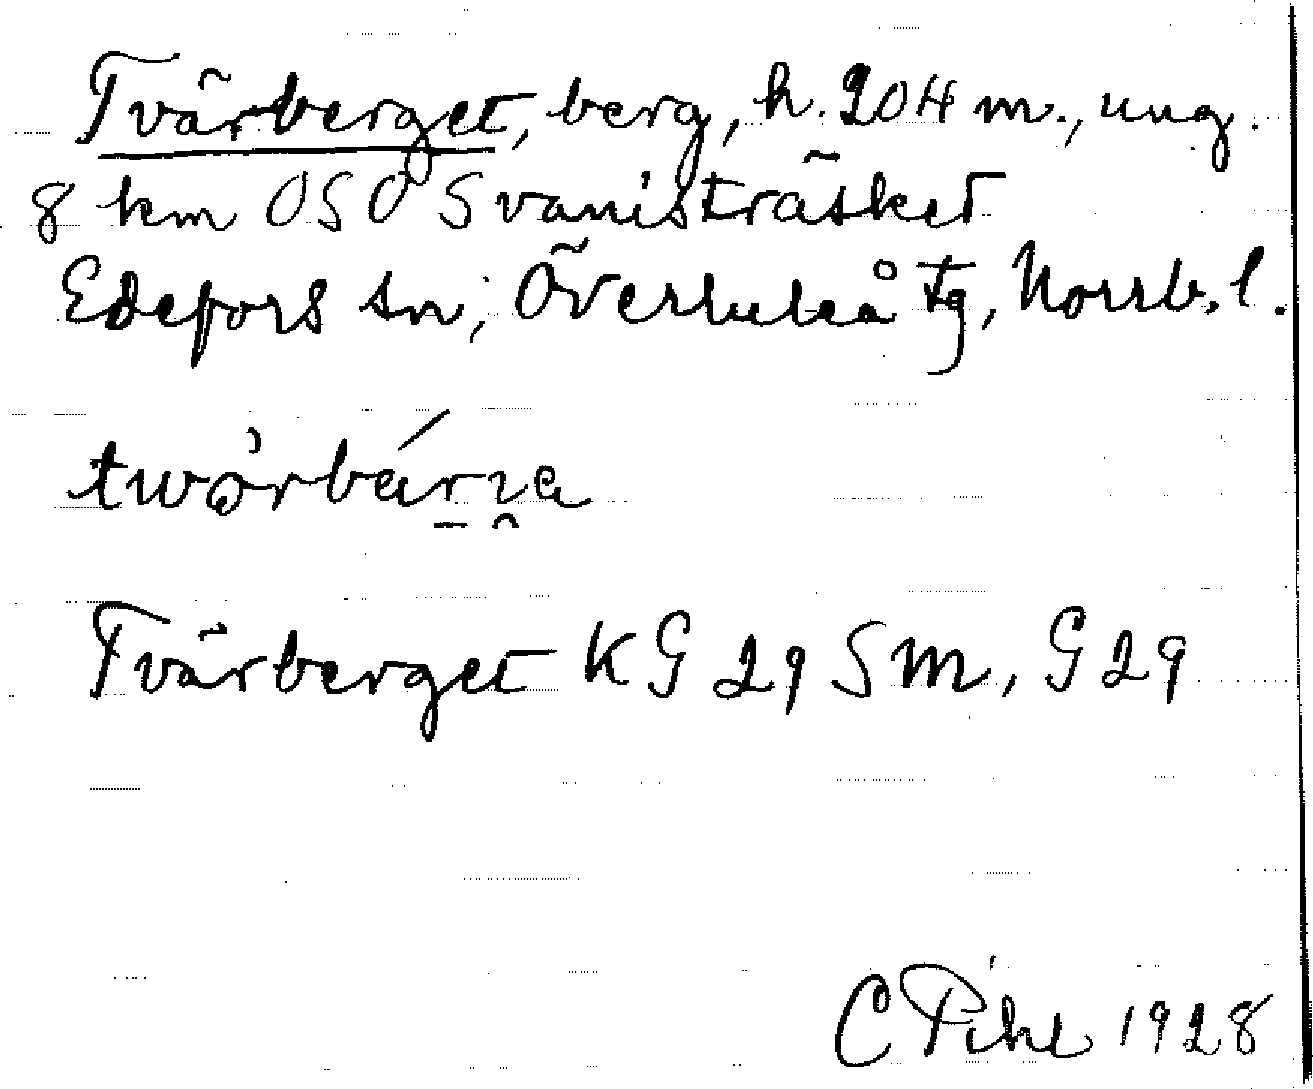 Tvärberget, berg, h. 204 m., ung.
8 km OSO Svanisträsket
Edefors sn, Överluleå tg, Norrb. l.
Tvärberget KG 29 Sm, G 29
C Pihl 1928